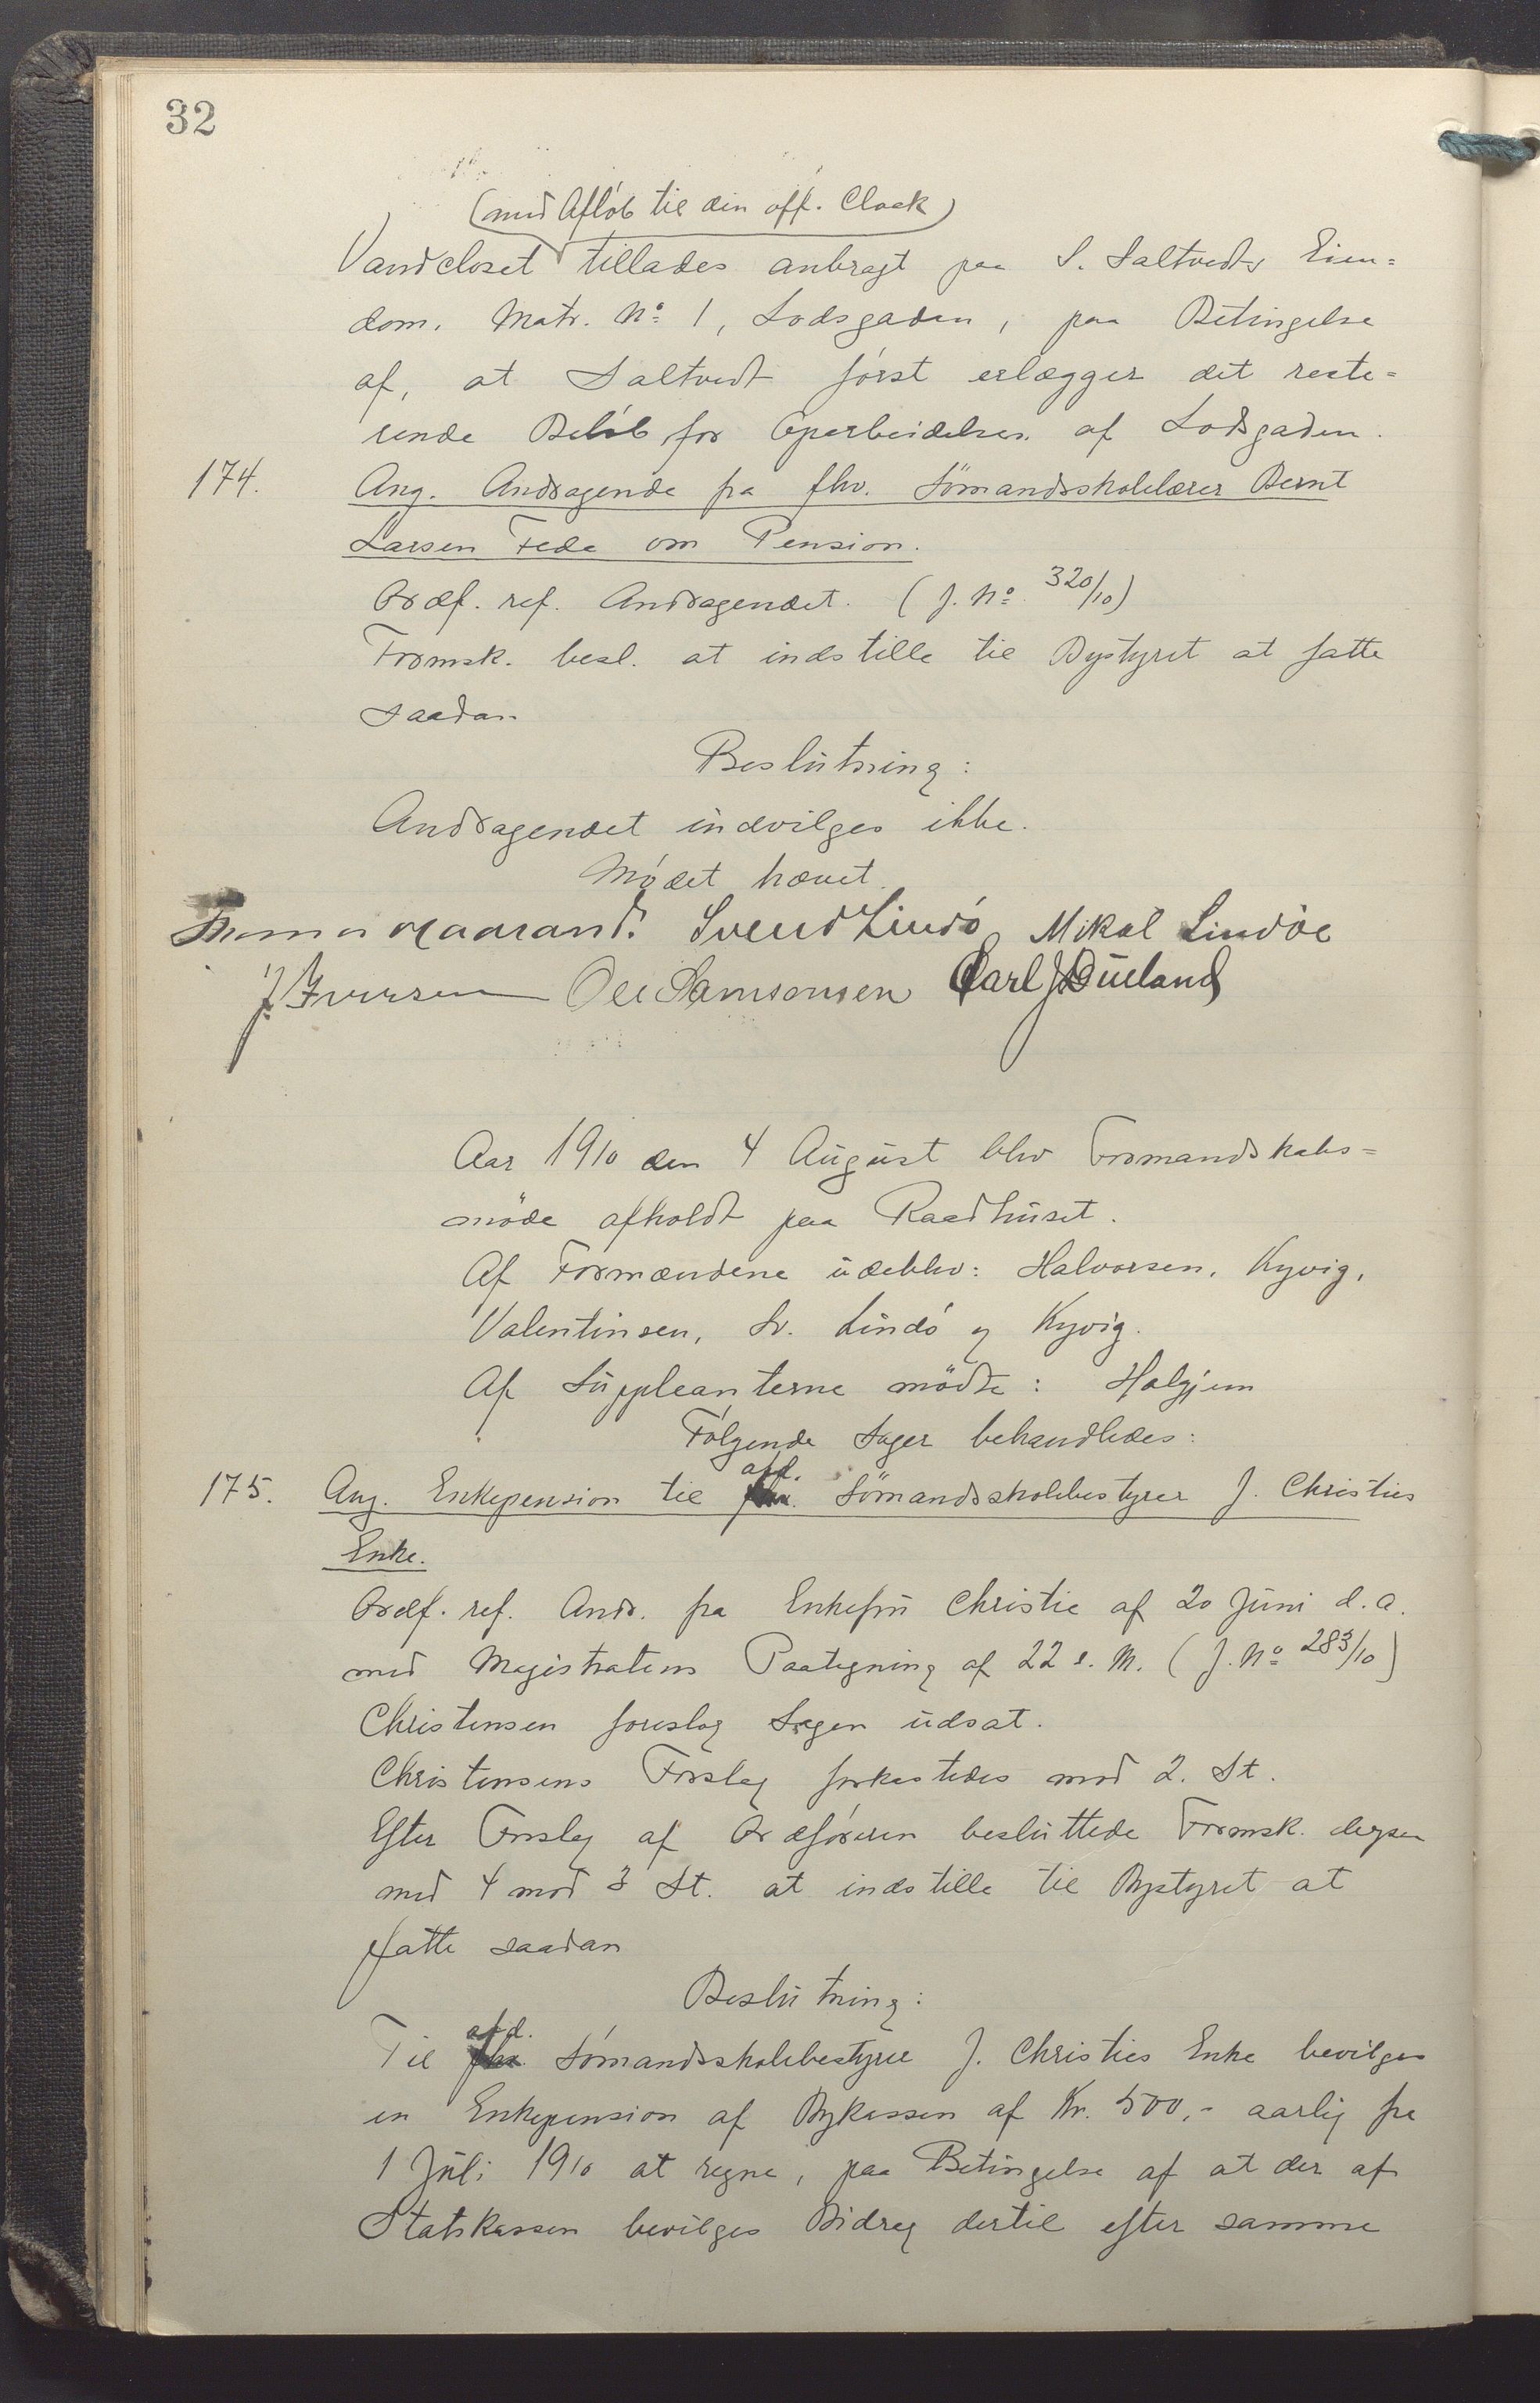 32
(med Afløb til den off. Cloak)
Vandcloset tillades anbragt paa S. Saltvedts Eien=
dom, Matr. No 1, Lodsgaden, paa Betingelse
af, at Saltvedt først erlægger det reste=
rende Beløb for Oparbeidelsen af Lodsgaden.
174. Ang. Andragende fra fhv. Sømandsskolelærer Bernt
Larsen Feda om Pension.
Ordf. ref. Andragendet. (J. No 320/10)
Formsk. besl. at indstille til Bystyret at fatte
saadan
Beslutning:
Andragendet indvilges ikke.
Mødet hævet.
Svend Lindø Mikal Lindøe
J. Iversen Ole Samsonsen Carl J. Dueland
Aar 1910 den 4 August blev Formandskabs=
møde afholdt paa Raadhuset.
Af Formændene udeblev: Halvorsen, Kyvig,
Valentinsen, Sv. Lindø og Kyvig.
Af Suppleanterne mødte: Helgjem
Følgende Sager behandledes:
175. Ang. Enkepension til afd. Sømandsskolebestyrer J. Christies
Enke.
Ordf. ref. Andr. fra Enkefru Christie af 20 Juni d. a.
med Magistratens Paategning af 22 s. M. (J. No 283/10)
Christensen foreslog Sagen udsat.
Christensens Forslag forkastedes mod 2. St.
Efter Forslag af Ordføreren besluttede Formsk. derpaa
med 4 mod 3 St. at indstille til Bystyret at
fatte saadan
Beslutning:
Til afd. Sømandsskolebestyrer J. Christies Enke bevilges
en Enkepension af Bykassen af Kr. 500,- aarlig fra
1 Juli 1910 at regne, paa Betingelse af at der af
Statskassen bevilges Bidrag dertil efter samme